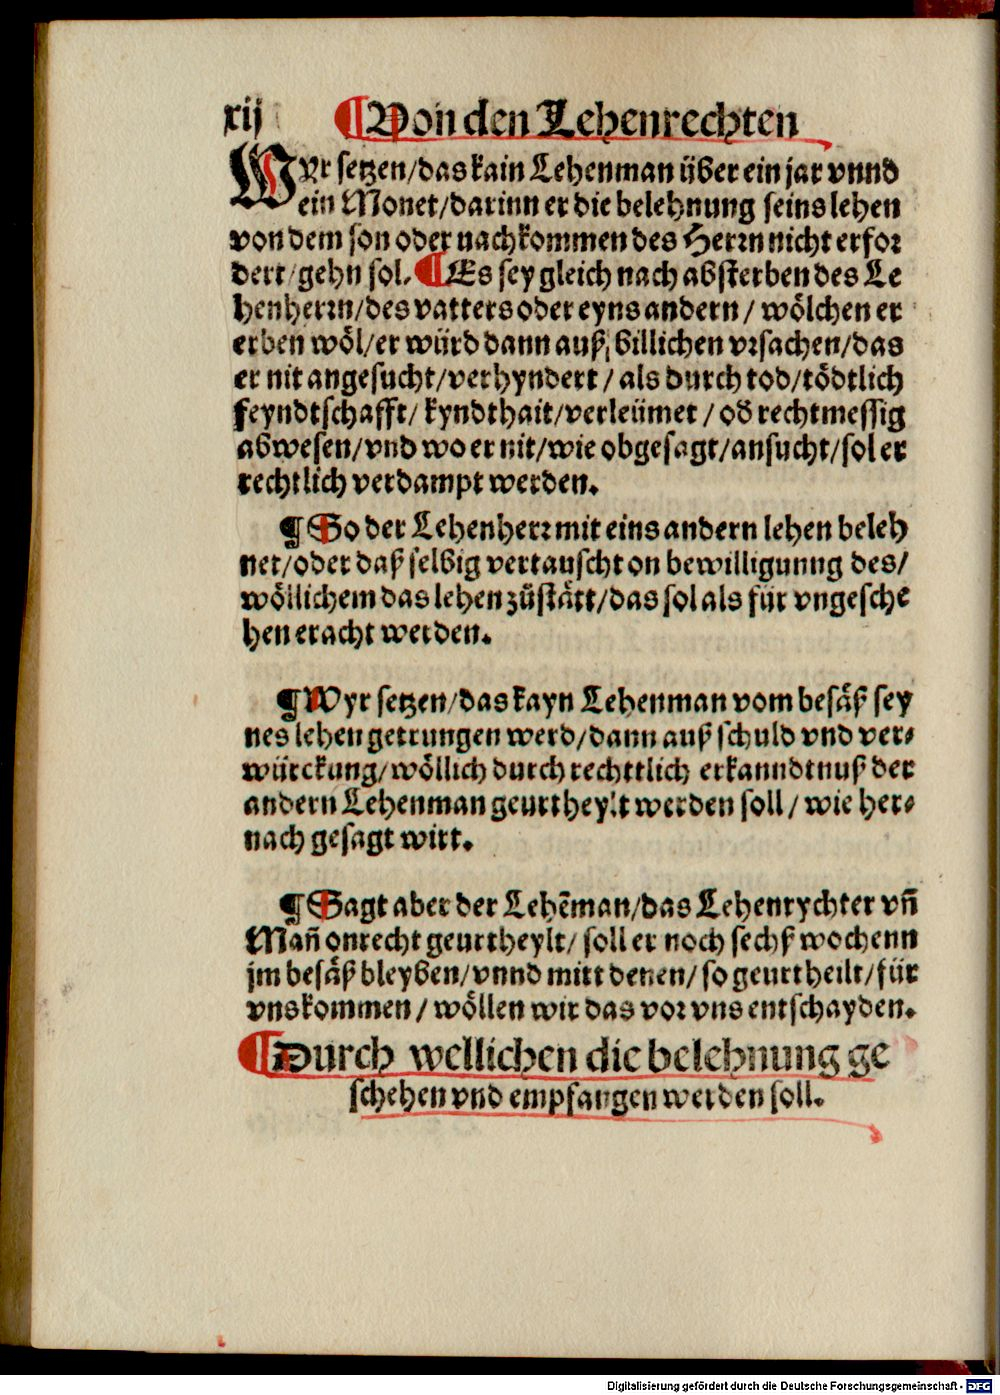 xij ¶Von den Lehenrechten
WYr setzen/das kain Lehenman über ein jar vnnd
ein Monet/darinn er die belehnung seins lehen
von dem son oder nachkommen des Herrn nicht erfor
dert/gehn sol. ¶Es sey gleich nach absterben des Le
henherrn/des vatters oder eyns andern/ wölchen er
erben wöl/er würd dann auß billichen vrsachen/das
er nit angesucht/verhyndert/ als durch tod/tödtlich
feyndtschafft/ kyndthait/verleümet/ od̄ rechtmessig
abwesen/vnd wo er nit/wie obgesagt/ansucht/sol er
rechtlich verdampt werden.
¶So der Lehenherr mit eins andern lehen beleh
net/oder daß selbig vertauscht on bewilligunng des/
wöllichem das lehen zůstätt/das sol als für vngesche
hen eracht werden.
¶Wyr setzen/das kayn Lehenman vom besäß sey
nes lehen getrungen werd/dann auß schuld vnd ver⸗
würckung/wöllich durch rechttlich erkanndtnuß der
andern Lehenman geurtheylt werden soll/ wie her⸗
nach gesagt wirt.
¶Sagt aber der Lehēman/das Lehenrychter vn̄
Man̄ onrecht geurtheylt/ soll er noch sechß wochenn
jm besäß bleyben/vnnd mitt denen/so geurtheilt/für
vns kommen/ wöllen wir das vor vns entschayden.
¶Durch wellichen die belehnung ge
schehen vnd empfangen werden soll.
Digitalisierung gefördert durch die Deutsche Forschungsgemeinschaft - DFG